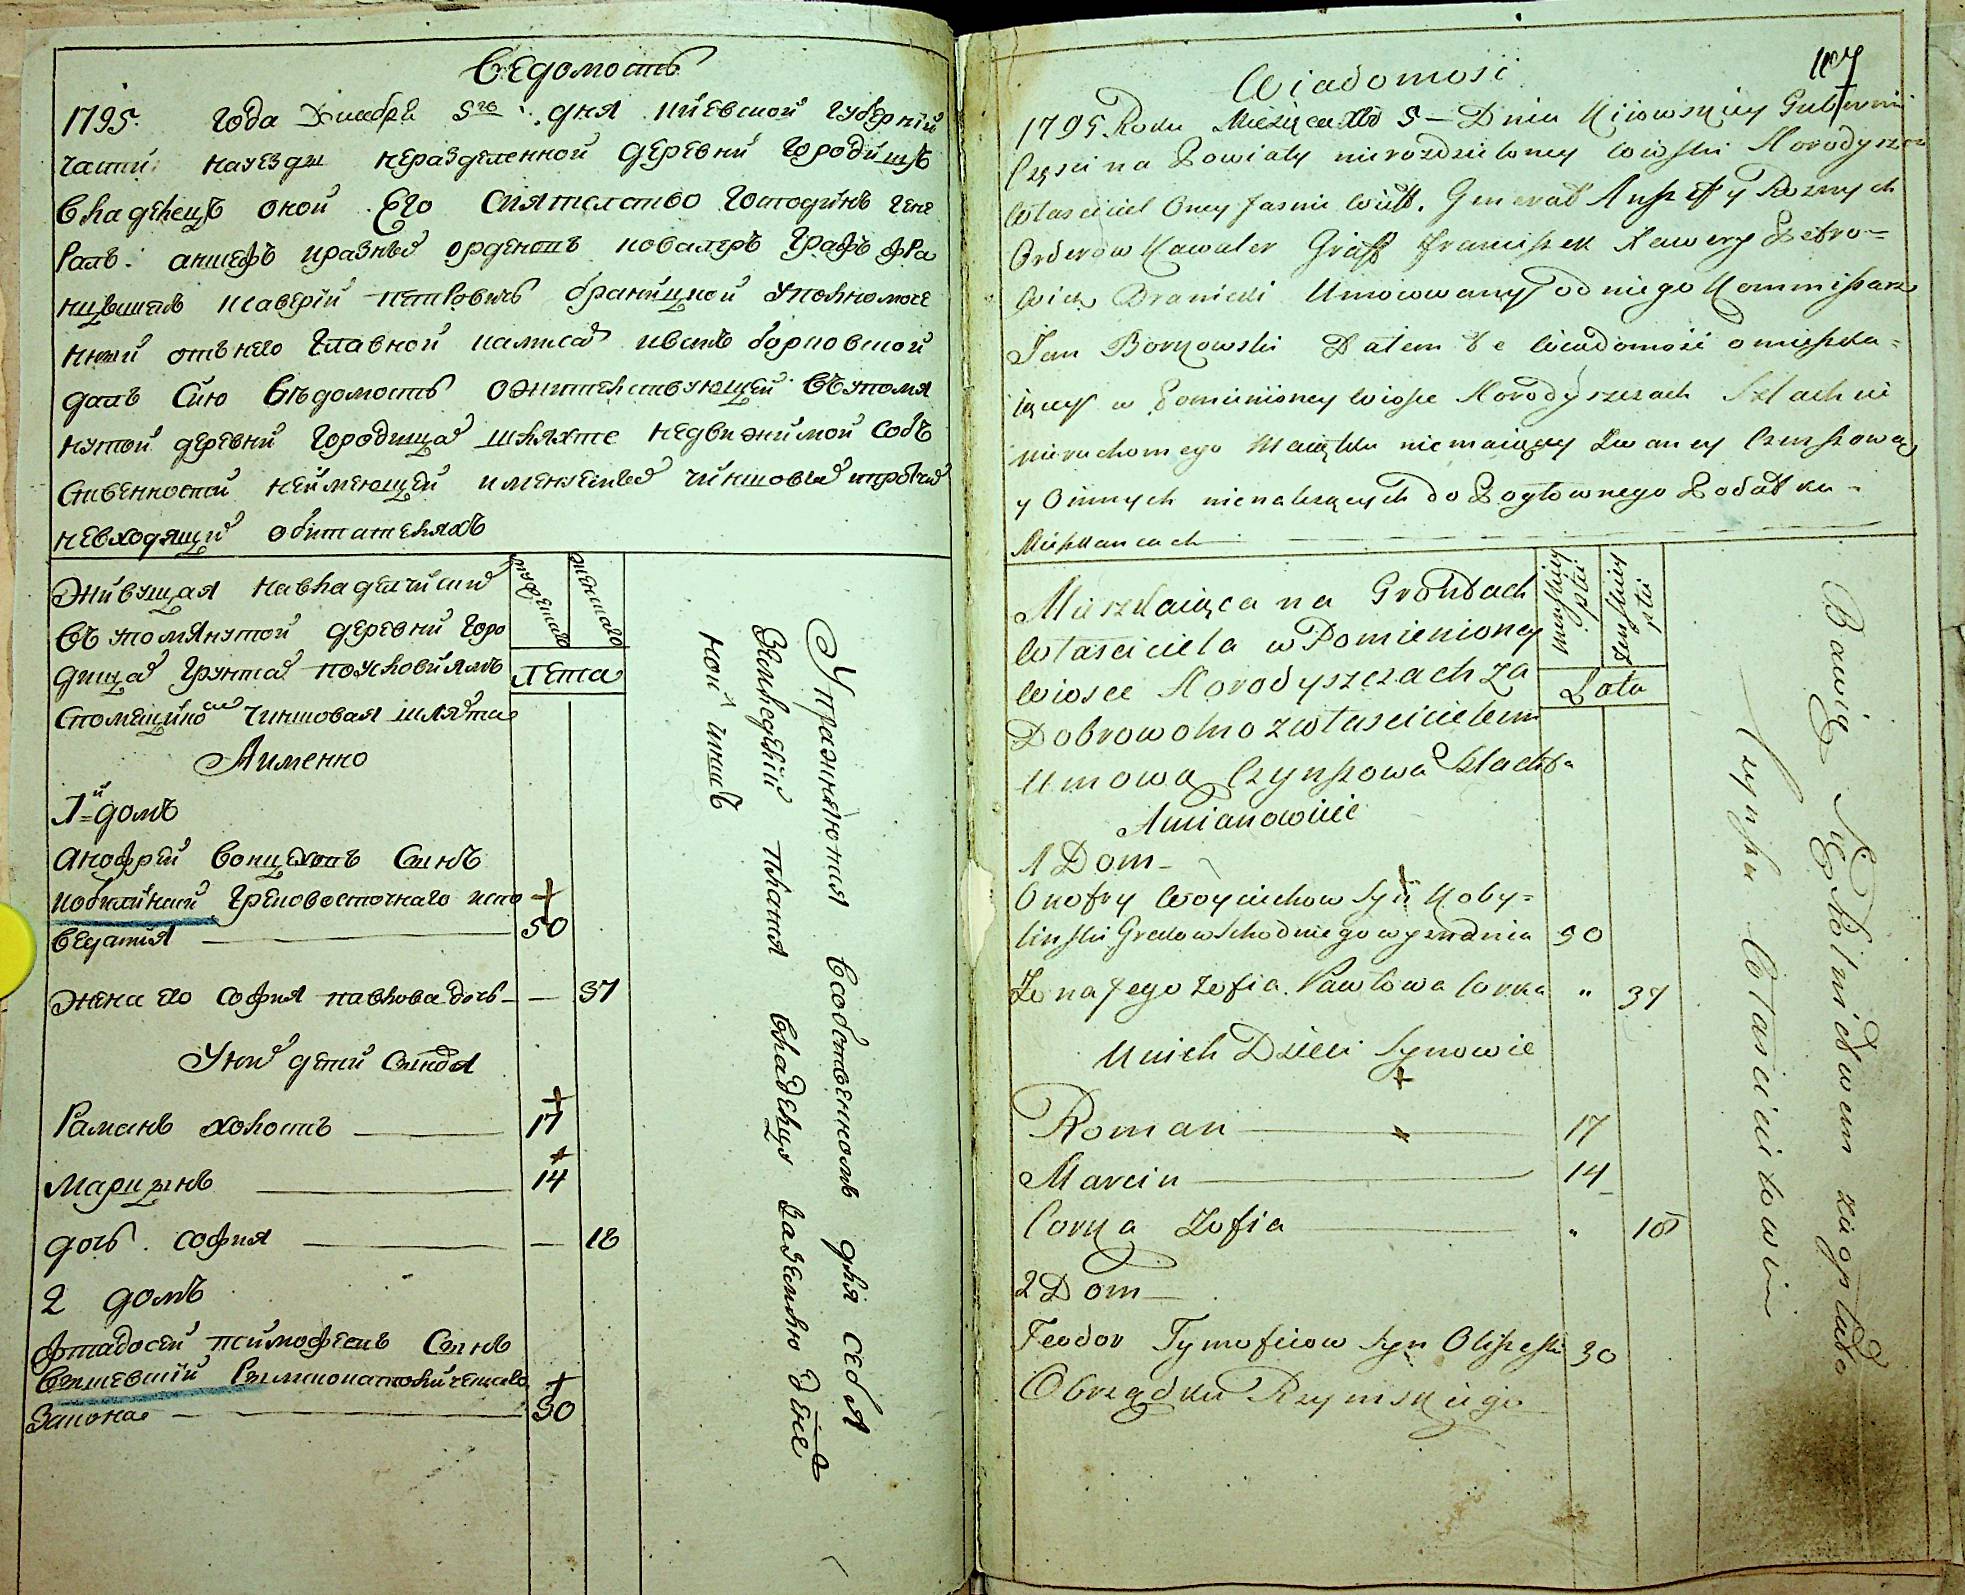 Ведомость
1795. года Декабря 5го дня Киевской губерний
части науезди неразделенной деревни Городищъ
владелецъ оной Его Сиятелство Господинъ Гене
ралъ аншефъ иразныхъ орденовъ ковалеръ Графъ Фра
нцышекъ Ксаверiй Петровичъ Браницкой Уполномоче
нный отънего Главной Иванъ Борковской
далъ Сию Вѣдомость ожительствующей въупомя
нутой деревни Городищахъ шляхте недвижимой Собъ
ственностей неймеющей чиншовыхъ ипрочихъ
невходящихъ обитателяхъ
Живущая навладелческихъ
въупомянутой деревни Горо
дищахъ Грунтахъ поусловиямъ
Спомещикомъ Чиншовая шляхта
Аименно
мужеска
женска
Лета
1й домъ
Анофрей Войцеховъ Сынъ
Кобилинский Грековосточнаго испо
ведания 50
Жена его София Павлова дочь — 37
Уних дети Синовя
Раманъ холостъ 17
Марцынъ 14
дочь София — 18
2 домъ
Фтадосей Тимофеевъ Сынъ
Римскокатоличешаго
Закона 30
Упражняются всобственномъ для себя
Хлебопашестве платя владельцу заземлю
ной чиншъ
117
Wiadomość
1795 Roku Miesiąca Xbra 5 – Dnia Kijowskiey Guberni
Częsci na Powiaty nierozdzieloney wioski Horodyszcz
własciciel Oney Jasnie Wiel. Generał Anszeff y Roznych
Orderow Kawaler Graff Franciszek Xawery Petro=
wicz Branicki Umocowany od niego Kommissarz
Jan Borkowski Dałem te wiadomość o mieszka=
iącey w Pomienioney wiosce Horodyszczach Szlachcie
nieruchomego Maiątku niemaiącey Zwaney Czynszową
y Oinnych nienależących do Pogłownego Podatku
Mieszkancach
Mieszkaiąca na Gróntach
własciciela w Pomienioney
wiosce Horodyszczach za
Dobrowolno zwłascicielem
Umową Czynszowa Szlachta
Amianowicie
Męskiey płci
Żenskiey płci
Lata
1 Dom
Onofry Woyciechow Syn Koby=
linski Grekowschodniego wyznania 50
Żona Jego Zofia Pawłowa Corka " 37
Unich Dzieci Synowie
Roman 17
Marcin 14
Corka Zofia " 18
2 Dom
Feodor Tymofieiow Syn Olszeski 30
Obrządku Rzymskiego
Bawią Się Rolnictwem zaopłato
Czynszu Własciciełowi